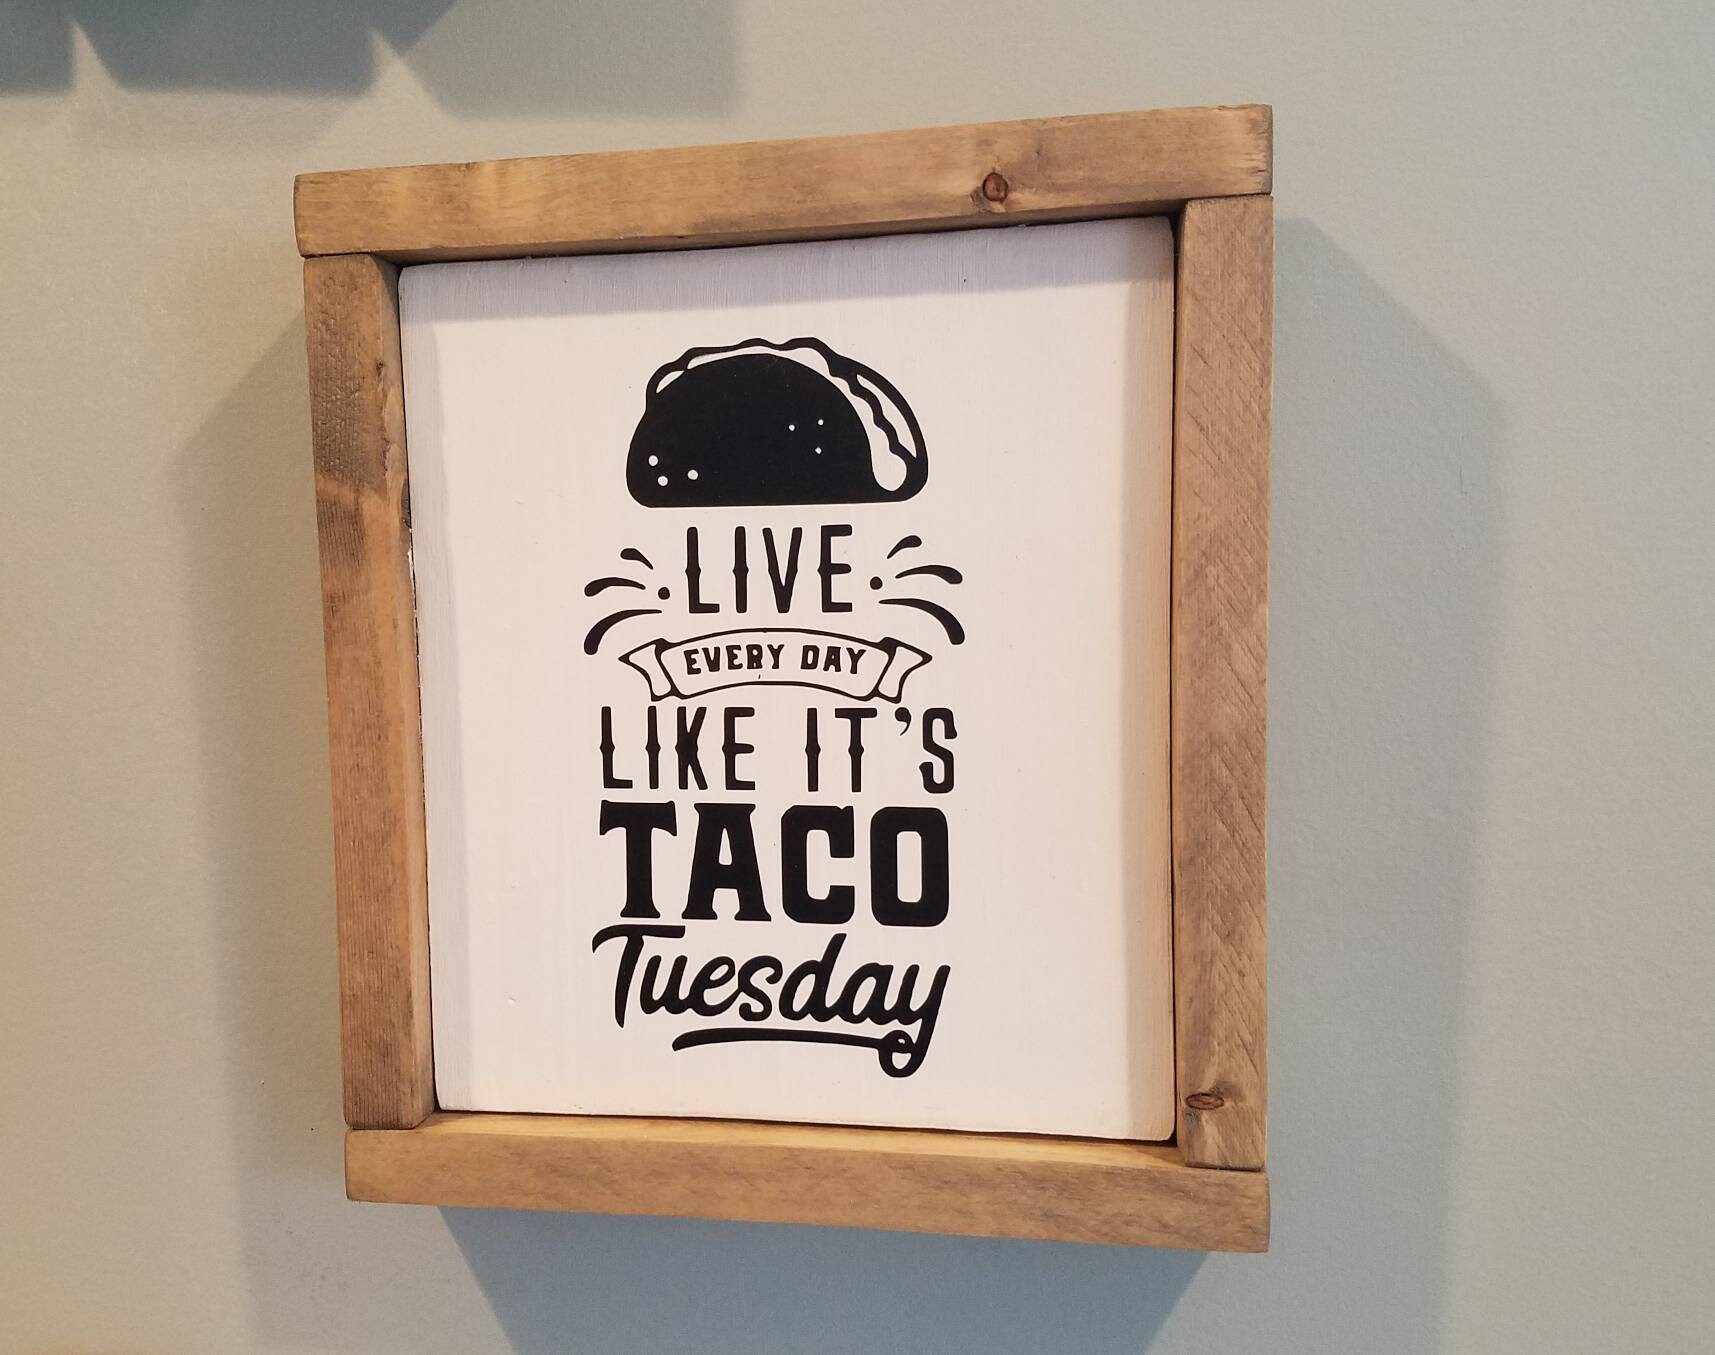 LIVE
EVERY DAY
LIKE IT'S
TACO
Tuesday